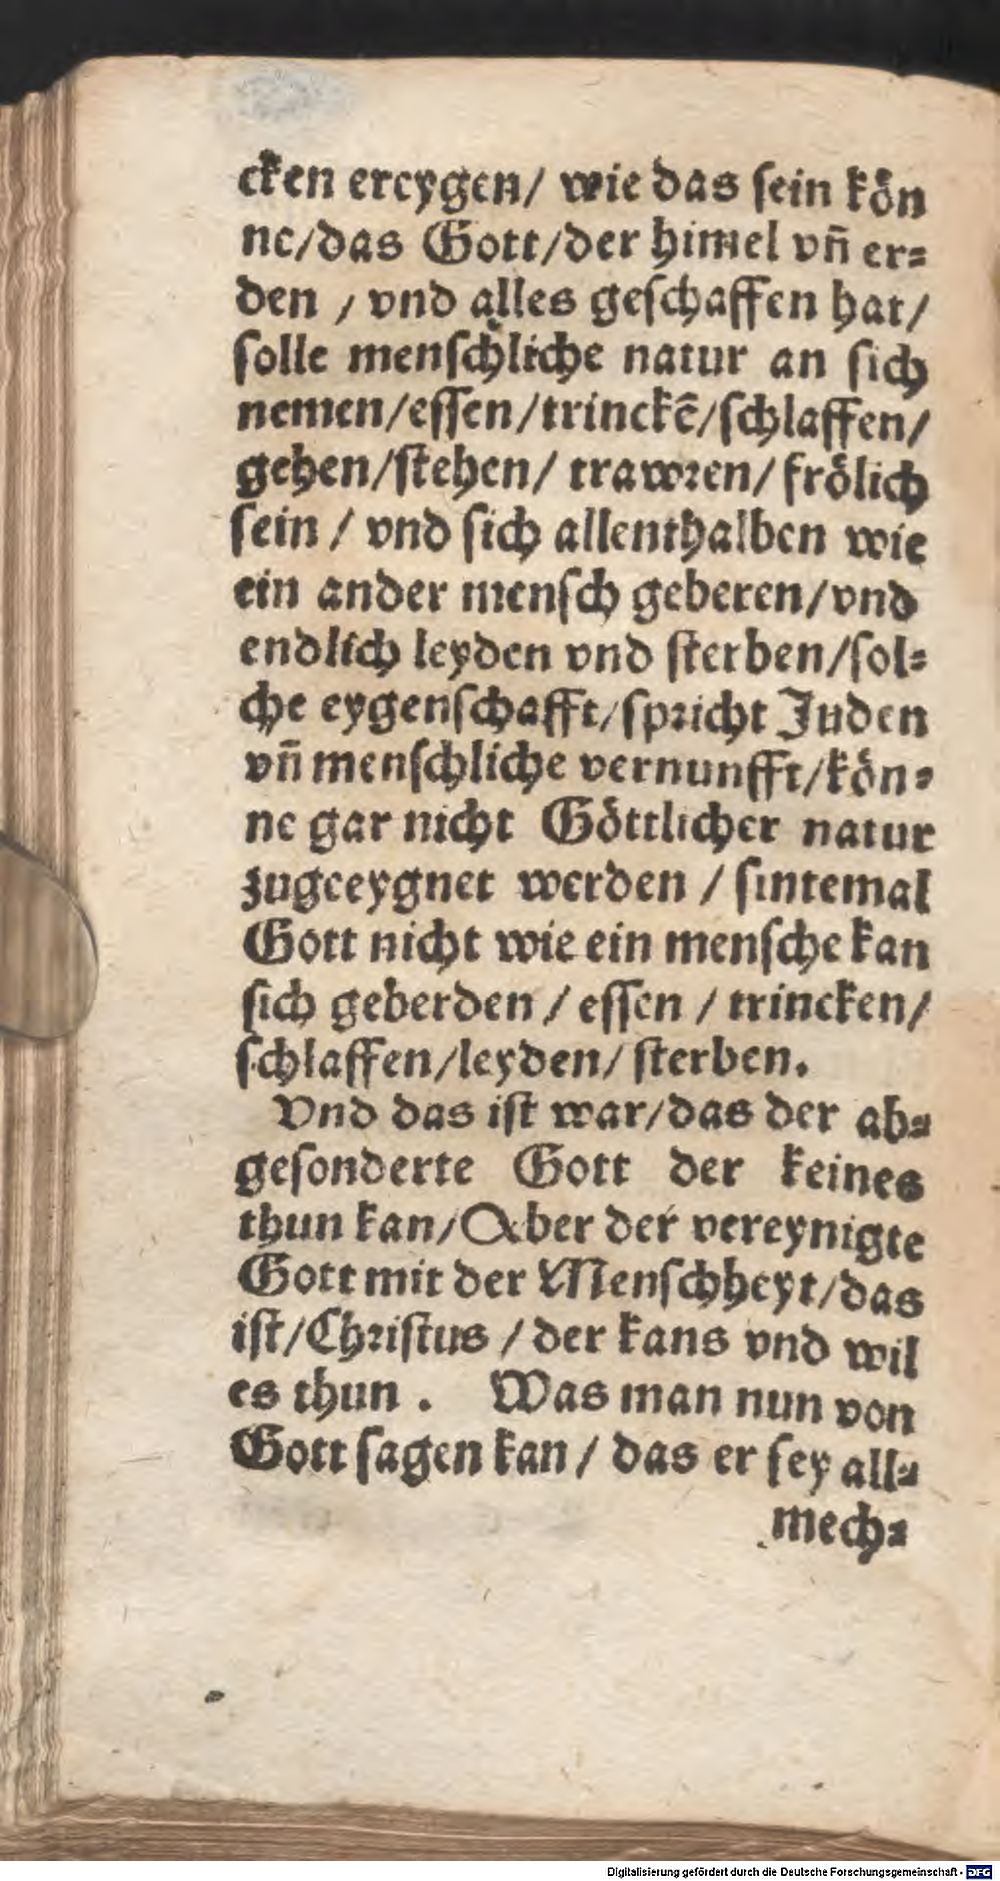 cken ereygen/ wie das ſein koͤn
ne/das Gott/der himel vñ er⸗
den / vnd alles geſchaffen hat/
ſolle menſchliche natur an ſich
nemen/eſſen/trinckē/ſchlaffen/
gehen/ſtehen/ trawꝛen/ froͤlich
ſein / vnd ſich allenthalben wie
ein ander menſch geberen/vnd
endlich leyden vnd ſterben/ſol⸗
che eygenſchafft/ſpꝛicht Juden
vñ menſchliche vernunfft/koͤn⸗
ne gar nicht Goͤttlicher natur
zugeeygnet werden / ſintemal
Gott nicht wie ein menſche kan
ſich geberden / eſſen / trincken/
ſchlaffen/leyden/ ſterben.
Vnd das iſt war/das der ab⸗
geſonderte Gott der keines
thun kan/Aber der vereynigte
Gott mit der Menſchheyt/das
iſt/Chꝛiſtus / der kans vnd wil
es thun . Was man nun von
Gott ſagen kan / das er ſey all⸗
mech⸗
Digitalisierung gefördert durch die Deutsche Forschungsgemeinschaft - DFG